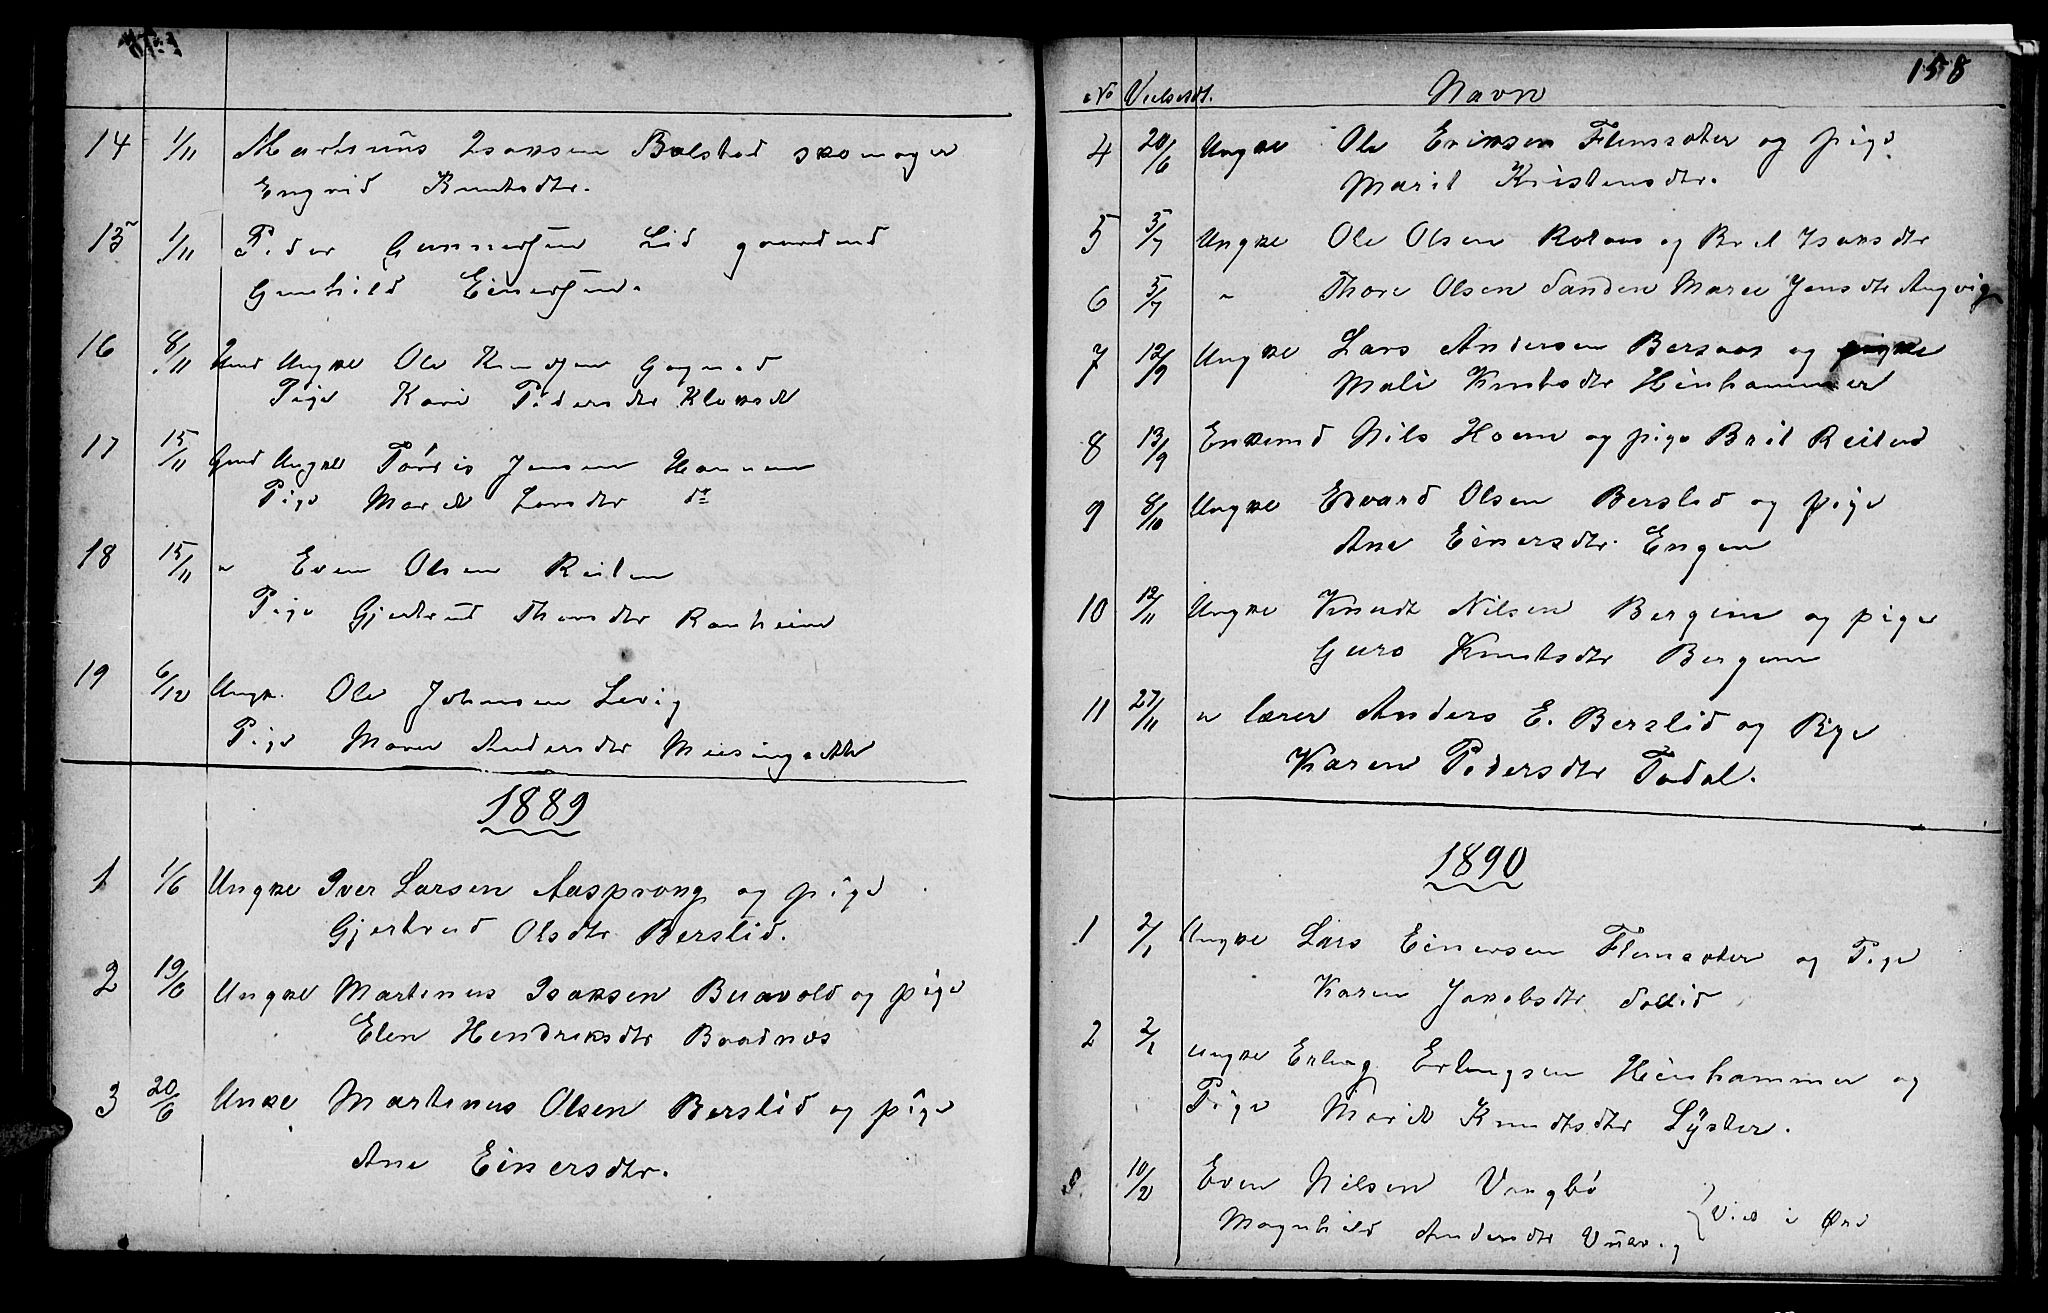 14 1/11 Martinus Isaksen Bolstad skomager
Engrid Knutsdtr.
15 1/11 Peder Gunnersen Lid gaardmd
Gunhild Einersen.
16 8/11 Gmd Ungke Ole Knudsen Gagnad
Pige Kari Pedersdtr Kleven
17 15/11 Gmd Ungke Tørris Jensen Hansem
Pige Marit Larsdtr do
18 15/11 " Even Olsen Reiten
Pige Gjertrud Thorsdtr Ranheim
19 6/12 Ungk. Ole Johnsen Levig
Pige Maren Andersdtr Meisingsett
1889
1 1/6 Ungke Iver Larsen Aasprong og pige
Gjertrud Olsdtr Berslid.
2 19/6 Ungke Martinus Isaksen Buavold og pige
Elen Hendriksdtr Baadnæs
3 20/6 Unke Martinus Olsen Berslid og pige
Ane Einersdtr.
158
No Vielsesdt. Navn
4 20/6 Ungke Ole Eriksen Flemsæter og pige
Marit Kristensdtr.
5 5/7 Ungke Ole Olsen Rolaas og Brit Isaksdtr
6 5/7 " Thore Olsen Sanden Maree Jensdtr Angvig
7 12/9 Ungke Lars Andersen Bersaas og
Mali Knutsdtr Heinhammer
8 13/9 Enkemd Nils Hoem og pige Brit Reiten
9 8/10 Ungke Edvard Olsen Berslid og pige
Ane Einersdtr. Engen
10 12/11 Ungke Knudt Nilsen Bergem og pige
Guro Knutsdtr Bergem
11 27/11 " lærer Anders E. Berslid og Pige
Karen Pedersdtr Todal.
1890
1 2/1 Ungke Lars Einersen Flemsæter og Pige
Karen Jakobsdtr Sollid
2 2/1 ungke Erling Erlingsen Heinhammer og
Pige Marit Knudtsdtr Lÿster.
3 10/2 Even Nilsen Vaagbø
Magnhild Andersdtr } Vied i Øre